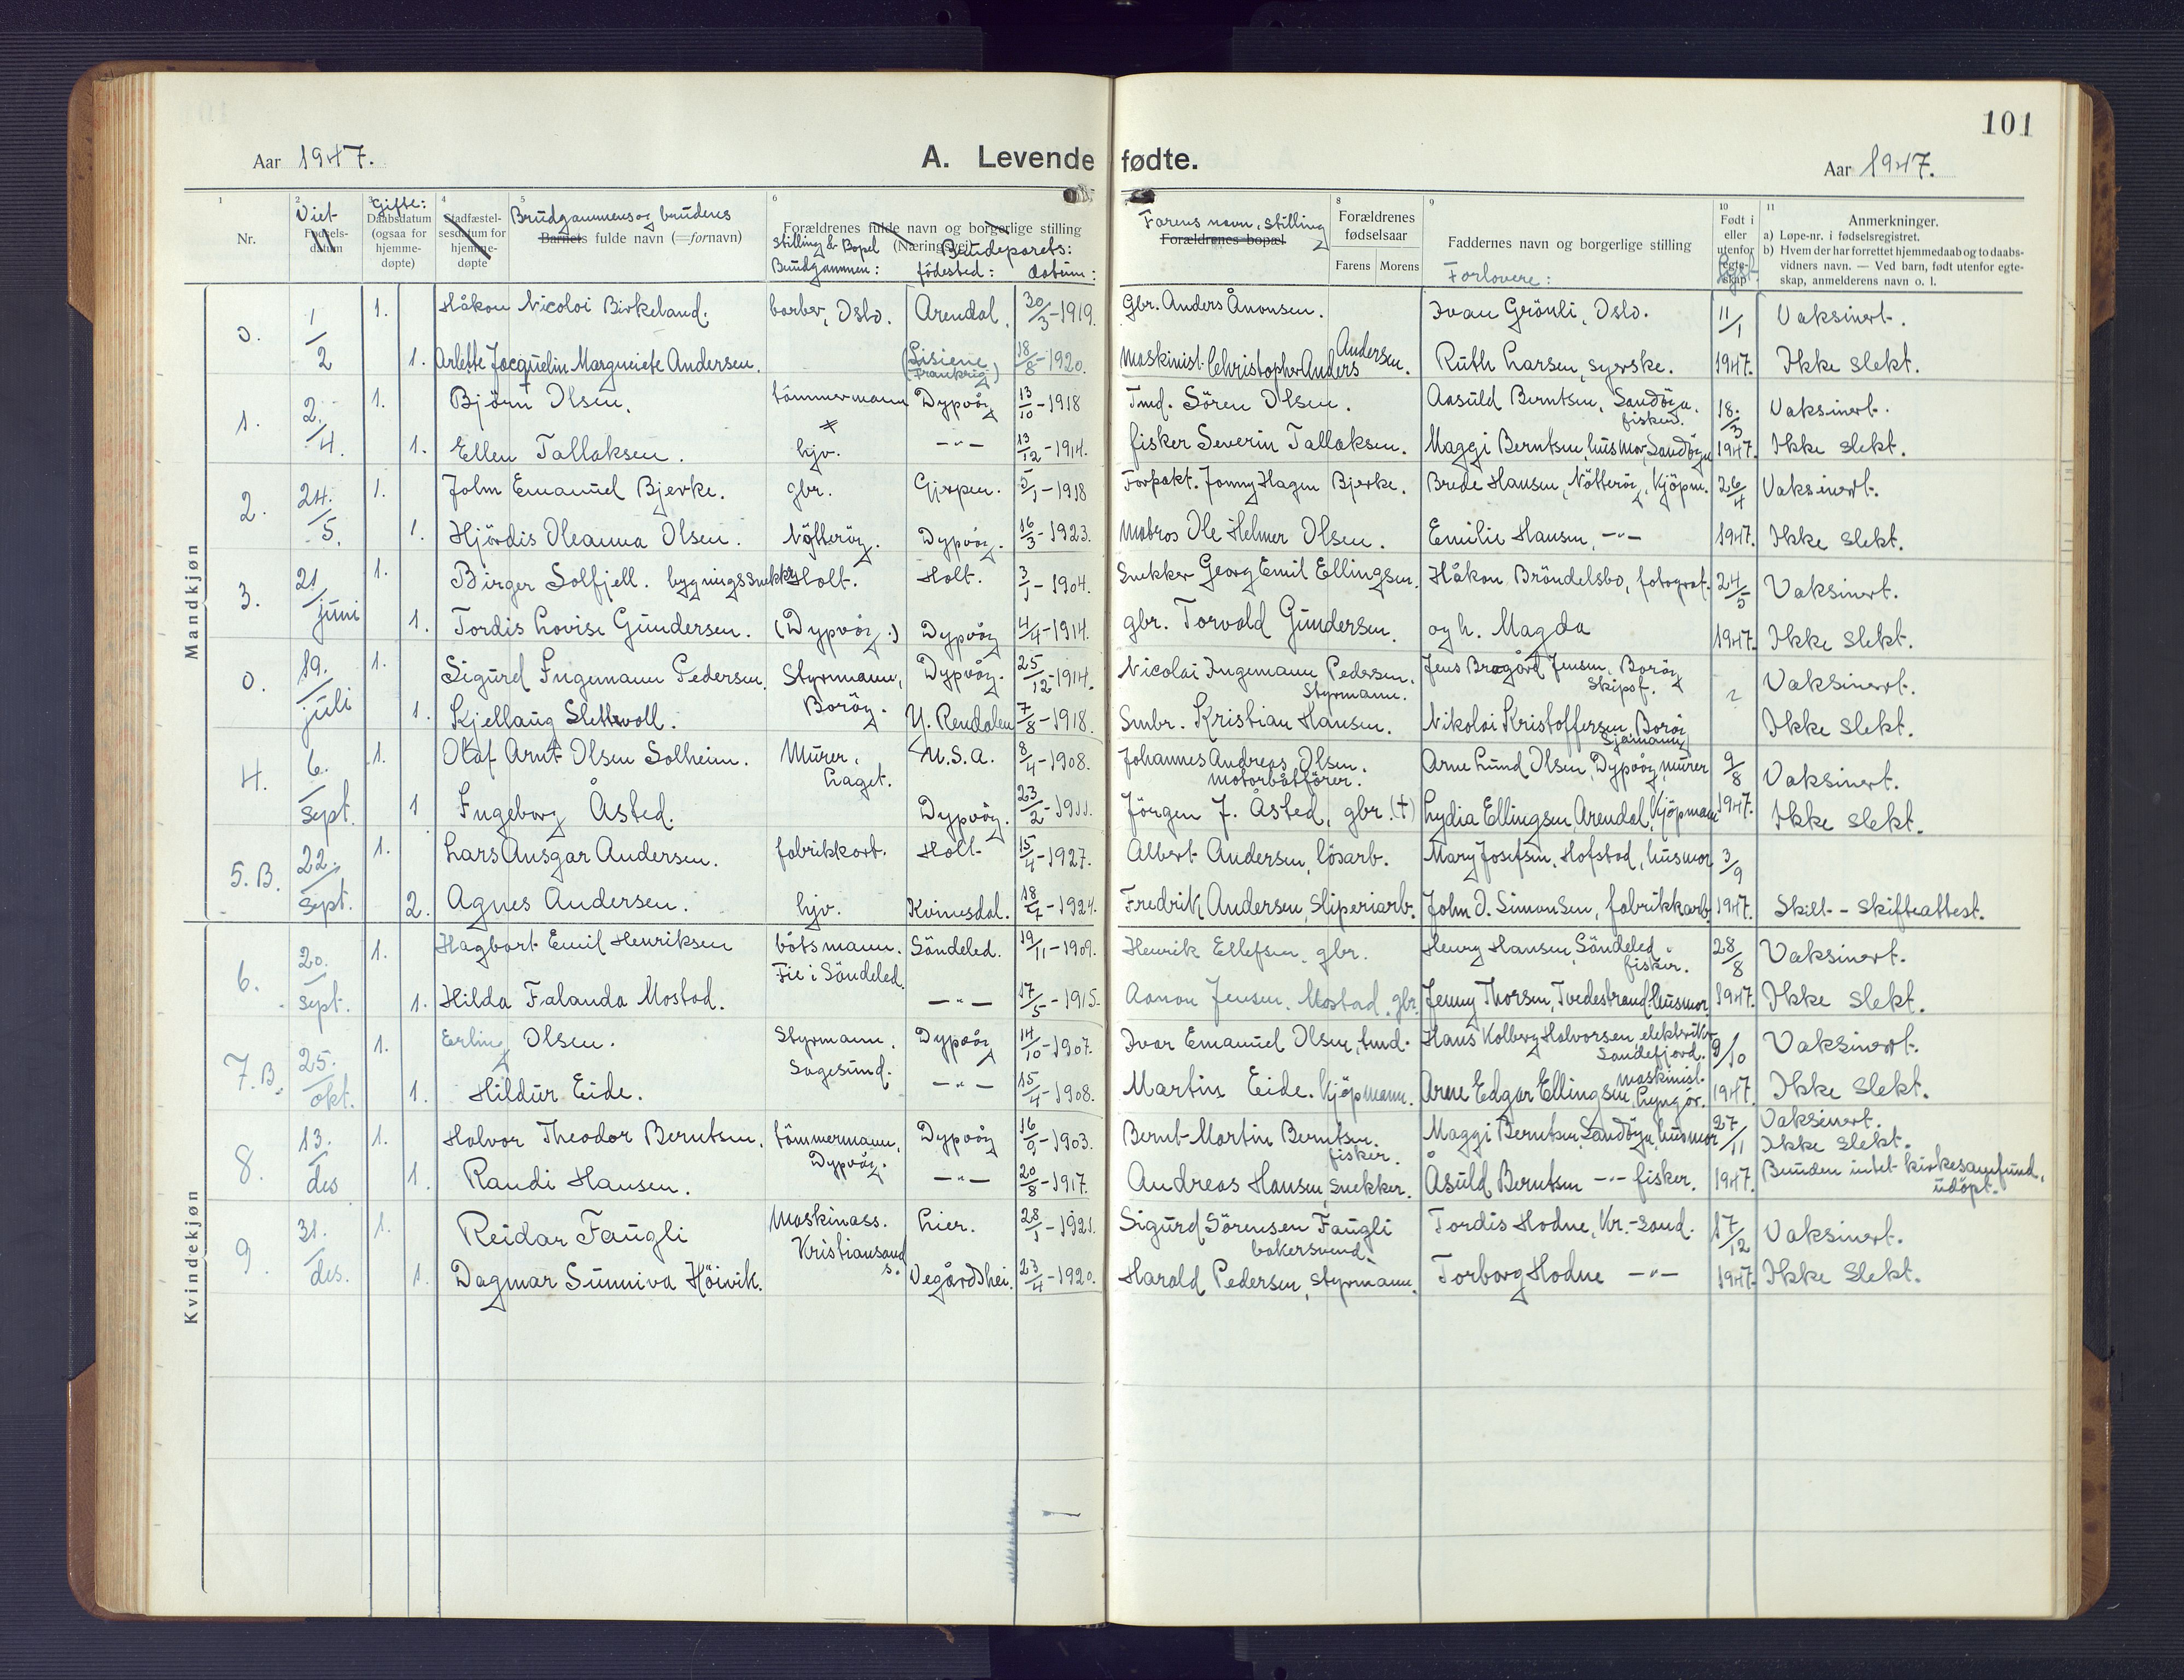 101
Aar 1947.
A. Levende fødte.
Aar 1947.
1
Nr.
2 Viet
Fødsels-
datum
3 Gifte:
Daabsdatum
(ogsaa for
hjemme-
døpte)
4
Stadfæstel-
sesdatum for
hjemme-
døpte
5
Brudgammens og brudens
Barnets fulde navn (=fornavn)
6
Forældrenes fulde navn og borgerlige stilling
(Næringsvei)
Stilling & Bopel
Brudgammen:
Brudeparets:
fødested: datum:
Farens navn, stilling
Forældrenes bopæl
8
Forældrenes
fødselsaar
Farens Morens
9
Faddernes navn og borgerlige stilling
Forlovere:
10
Født i
eller
utenfor
egte-
skap
11
Anmerkninger.
a) Løpe-nr. i fødselsregistret.
b) Hvem der har forrettet hjemmedaab og to daabs-
vidners navn. — Ved barn, født utenfor egte-
skap, anmelderens navn o. l.
Mandkjøn
0. 1/2 1. Håkon Nicolai Birkeland. barber, Oslo. Arendal. 30/3-1919. Gbr. Anders Ånonsen. Ivan Grönli, Oslo. 11/1 Vaksinert.
1. Arlette Jacquelin Margueiete Andersen. (Lisiene Frankrig) 18/8-1920. Maskinist. Christopher Anders Andersen. Ruth Larsen, syerske. 1947. Ikke slekt.
1. 2./4. 1. Björn Olsen. tömmermann Dypvåg 13/10-1918 Tmd. Sören Olsen. Aasuld Berntsen, Sandöya. fisker. 18./3 Vaksinert.
1. Ellen Tallaksen. hjv. —"— 13/12-1914. fisker Severin Tallaksen. Maggi Berntsen, husmor, Sandöya 1947. Ikke slekt.
2. 24./5. 1. John Emanuel Bjerke. gbr. Gjerpen. 5/1-1918 Forpakt. Jonny Hagen Bjerke. Brede Hansen, Nötteröy, Kjöpm. 26/4 Vaksinert.
1. Hjördis Oleanna Olsen. Nötteröy. Dypvåg. 16/3-1923. Matros Ole Helmer Olsen. Emilie Hansen, —"— 1947. Ikke slekt.
3. 21/juni 1. Birger Solfjell. bygningssnekker Holt. Holt. 3/1-1904. Snekker Georg Emil Ellingsen. Håkon Bröndelsbo, fotograf. 24/5 Vaksinert.
1. Tordis Lovise Gundersen. (Dypvåg.) Dypvåg 4/4-1914. gbr. Torvald Gundersen. og h. Magda 1947. Ikke slekt.
0. 19./juli 1. Sigurd Ingemann Pedersen. Styrmann, Dypvåg. 25/12-1914. Nicolai Ingemann Pedersen. Styrmann. Jens Bragård Jensen, Boröy Skipsf. ? Vaksinert.
1. Kjellaug Slettvoll. Boröy. Y. Rendalen 7/8-1918. Smbr. Kristian Hansen. Nikolai Kristoffersen, Boröy Sjömann Ikke slekt.
4. 6./sept. 1. Olaf Arnt Olsen Solheim. Murer. Laget. U.S.A. 8/4-1908. Johannes Andreas Olsen. motorbåtförer. Arne Lund Olsen, Dypvåg, murer 9/8 Vaksinert.
1 Ingeborg Åsted. Dypvåg. 23/2-1911. Jörgen J. Åsted, gbr. (†) Lydia Ellingsen, Arendal, Kjöpmann 1947. Ikke slekt.
5.B. 22./sept. 1. Lars Ansgar Andersen. fabrikkarb. Holt 15/4-1927. Albert Andersen, lösarb. Mary Josefsen, Hofstad, husmor 3/9
2. Agnes Andersen. hjv. Kvinesdal. 18/7-1924. Fredrik Andersen, Sliperiarb. John O. Simonsen, fabrikkarb. 1947. Skilt - Skifteattest.
Kvindekjøn
6. 20./sept. 1. Hagbart Emil Henriksen båtsmann. Fie i Söndeled. Söndeled. 19/11-1909. Henrik Ellefsen, gbr. Henry Hansen, Söndeled. fisker. 28/8 Vaksinert.
1. Hilda Falanda Mostad. —"— 17/5-1915. Aanon Jensen Mostad, gbr. Jenny Thorsen, Tvedestrand, husmor 1947. Ikke slekt.
7.B. 25./okt. 1. Erling Olsen. Styrmann. Sagesund. Dypvåg 14/10-1907. Ivar Emanuel Olsen, tmd. Hans Kolberg Halvorsen, elektriker Sandefjord. 9/10 Vaksinert.
1. Hildur Eide. —"— 15/4-1908. Martin Eide. Kjöpmann. Arne Edgar Ellingsen, maskinist. Lyngör. 1947. Ikke slekt.
8. 13./des 1. Halvor Theodor Berntsen. tömmermann, Dypvåg. Dypvåg 16/9-1903. Bernt Martin Berntsen. fisker. Maggi Berntsen, Sandöya, husmor 27/11 Vaksinert. Ikke slekt.
1. Randi Hansen. —"— 20/8-1917. Andreas Hansen, Snekker. Åsuld Berntsen —"— fisker. 1947. Bruden intet kirkesamfund, udöpt.
9. 31./des. 1. Reidar Faugli Maskinass. Kristiansand S. Lier. 28/1-1921. Sigurd Sörensen Faugli bakersvend. Tordis Hodne, Kr.-Sand. 17/12 Vaksinert.
1. Dagmar Sunniva Höivik. Vegårdshei. 23/4-1920. Harald Pedersen, Styrmann. Torborg Hodne —"— 1947. Ikke slekt.